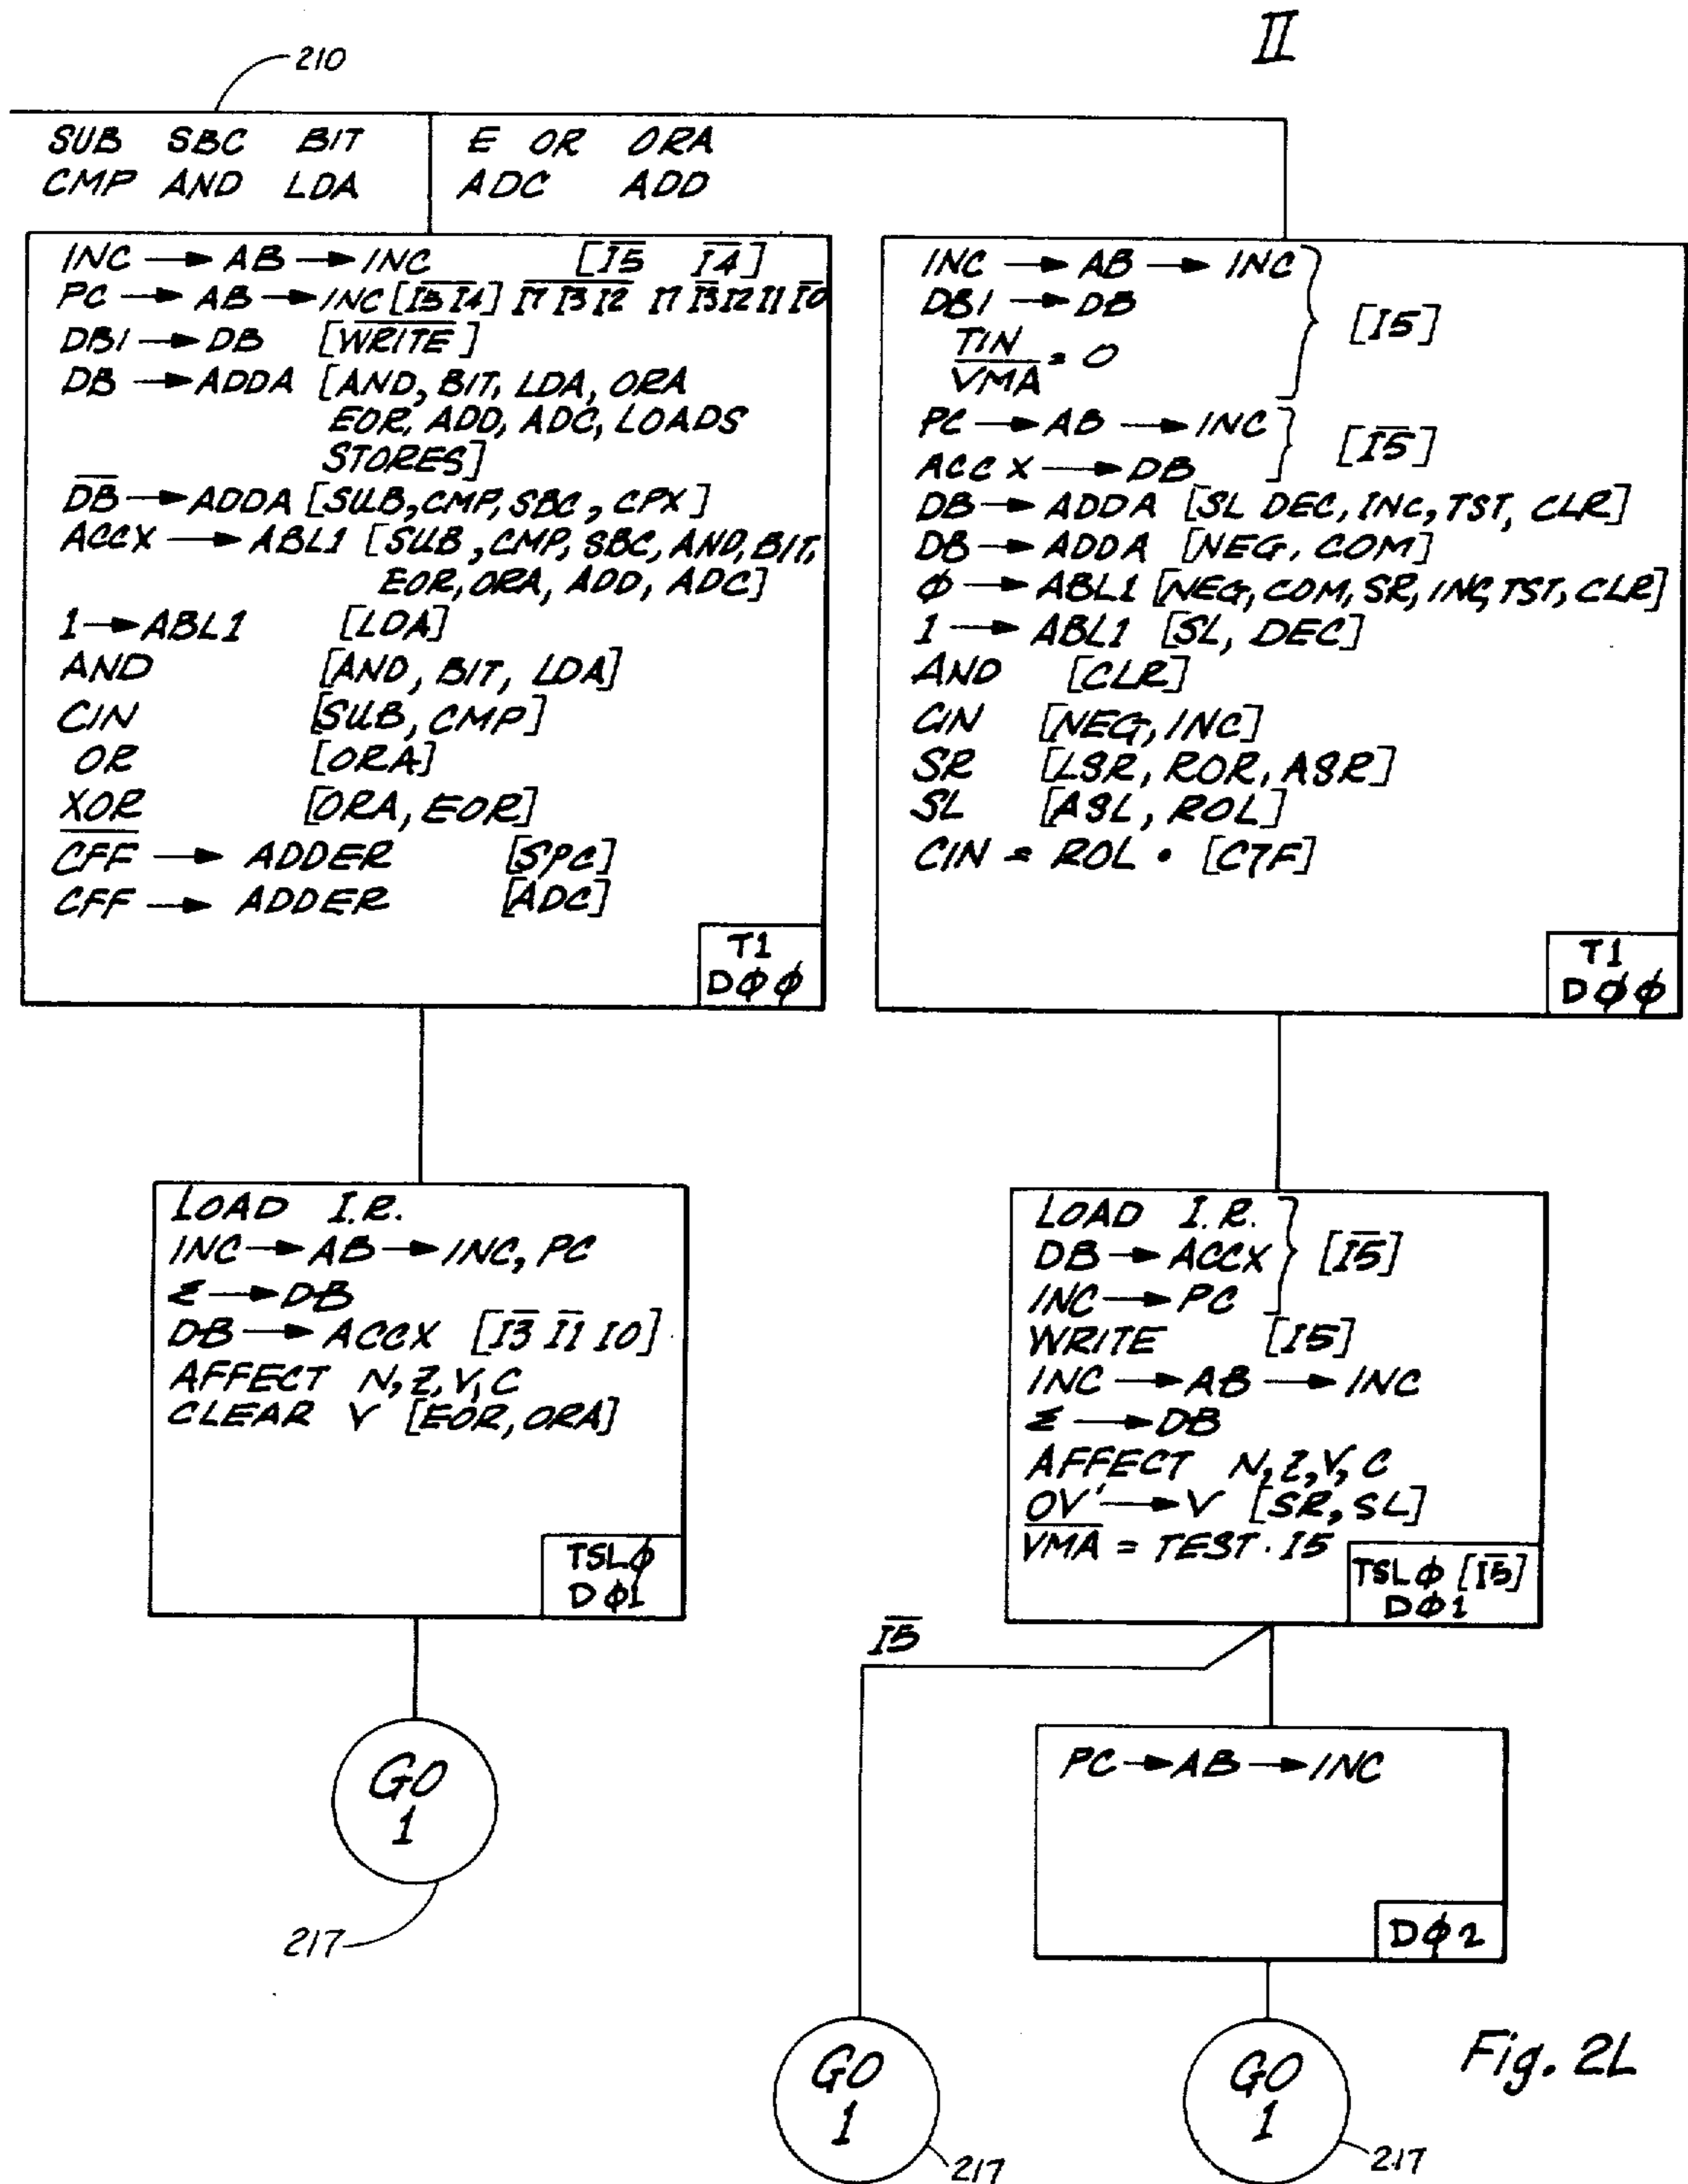 II
210
SUB SBC BIT
CMP AND LDA
E OR ORA
ADC ADD
INC → AB → INC [I̅5̅ I̅4̅]
PC → AB → INC [I̅5̅ ̅I̅4̅] I̅7̅ I̅3̅ ̅I̅2̅ I7 I̅3̅ I2 I1 I̅0̅
DBI → DB [W̅R̅I̅T̅E̅]
DB → ADDA [AND, BIT, LDA, ORA
EOR, ADD, ADC, LOADS
STORES]
D̅B̅ → ADDA [SUB, CMP, SBC, CPX]
ACCX → ABL1 [SUB, CMP, SBC, AND, BIT,
EOR, ORA, ADD, ADC]
1 → ABL1 [LDA]
AND [AND, BIT, LDA]
CIN [SUB, CMP]
OR [ORA]
XOR [ORA, EOR]
C̅F̅F̅ → ADDER [SPC]
CFF → ADDER [ADC]
T1
Dϕϕ
INC → AB → INC
DBI → DB
TIN
V̅M̅A̅ = 0
[I5]
PC → AB → INC
ACC X → DB
[I̅5̅]
DB → ADDA [SL DEC, INC, TST, CLR]
DB → ADDA [NEG, COM]
ϕ → ABL1 [NEG, COM, SR, INC, TST, CLR]
1 → ABL1 [SL, DEC]
AND [CLR]
CIN [NEG, INC]
SR [LSR, ROR, ASR]
SL [ASL, ROL]
CIN = ROL • [C7F]
T1
Dϕϕ
LOAD I.R.
INC → AB → INC, PC
Σ → DB
DB → ACCX [I̅3̅ I̅1̅ I0]
AFFECT N, Z, V, C
CLEAR V [EOR, ORA]
TSLϕ
Dϕ1
LOAD I.R.
DB → ACCX
INC → PC
[I̅5̅]
WRITE [I5]
INC → AB → INC
Σ → DB
AFFECT N, Z, V, C
OV' → V [SR, SL]
V̅M̅A̅ = TEST · I5
TSLϕ [I̅5̅]
Dϕ1
I̅5̅
GO
1
217
PC → AB → INC
Dϕ2
GO
1
217
GO
1
217
Fig. 2L